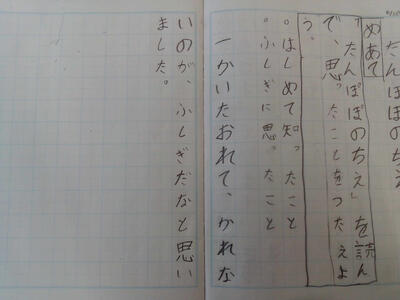 たんぽぽのちえ
めあて
「たんぽぽのちえ」を読ん
で、思ったことをつたえよ
う。
。はじめて知ったこと
。ふしぎに思ったこと
一かいたおれて、かれな
いのが、ふしぎだなと思い
ました。